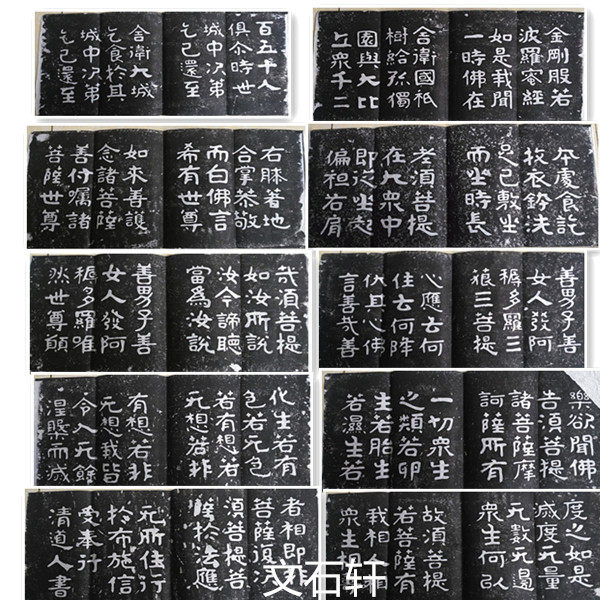 金剛般若
波羅蜜經
如是我聞
一時佛在
舍衛國祇
樹給孤獨
園與大比
丘衆千二
百五十人
俱尒時世
城中次弟
乞已還至
舍衛大城
乞食於其
城中次弟
乞已還至
本處食訖
收衣鉢洗
足已敷坐
而坐時長
老須菩提
在大衆中
即從坐
偏袒右肩
右膝著地
合掌恭敬
而白佛言
希有世尊
如來善護
念諸菩薩
善付囑諸
菩薩世尊
善男子善
女人發阿
耨多羅三
藐三菩提
心應云何
住云何降
伏其心佛
言善哉善
哉須菩提
如汝所說
汝今諦聽
當為汝說
善男子善
女人發阿
耨多羅唯
然世尊願
樂欲聞佛
告須菩提
諸菩薩摩
訶薩所有
一切衆生
之類若卵
生若胎生
若濕生若
化生若有
色若无色
若有想若
无想若非
有想若非
无想我皆
令入无餘
涅槃而滅
度之如是
滅度无量
无數无邊
衆生何以
故須菩提
若菩薩有
我相人相
衆生相
者相即非
菩薩復次
須菩提菩
薩於法應
无所住行
於布施信
受奉行
清道人書
文石轩